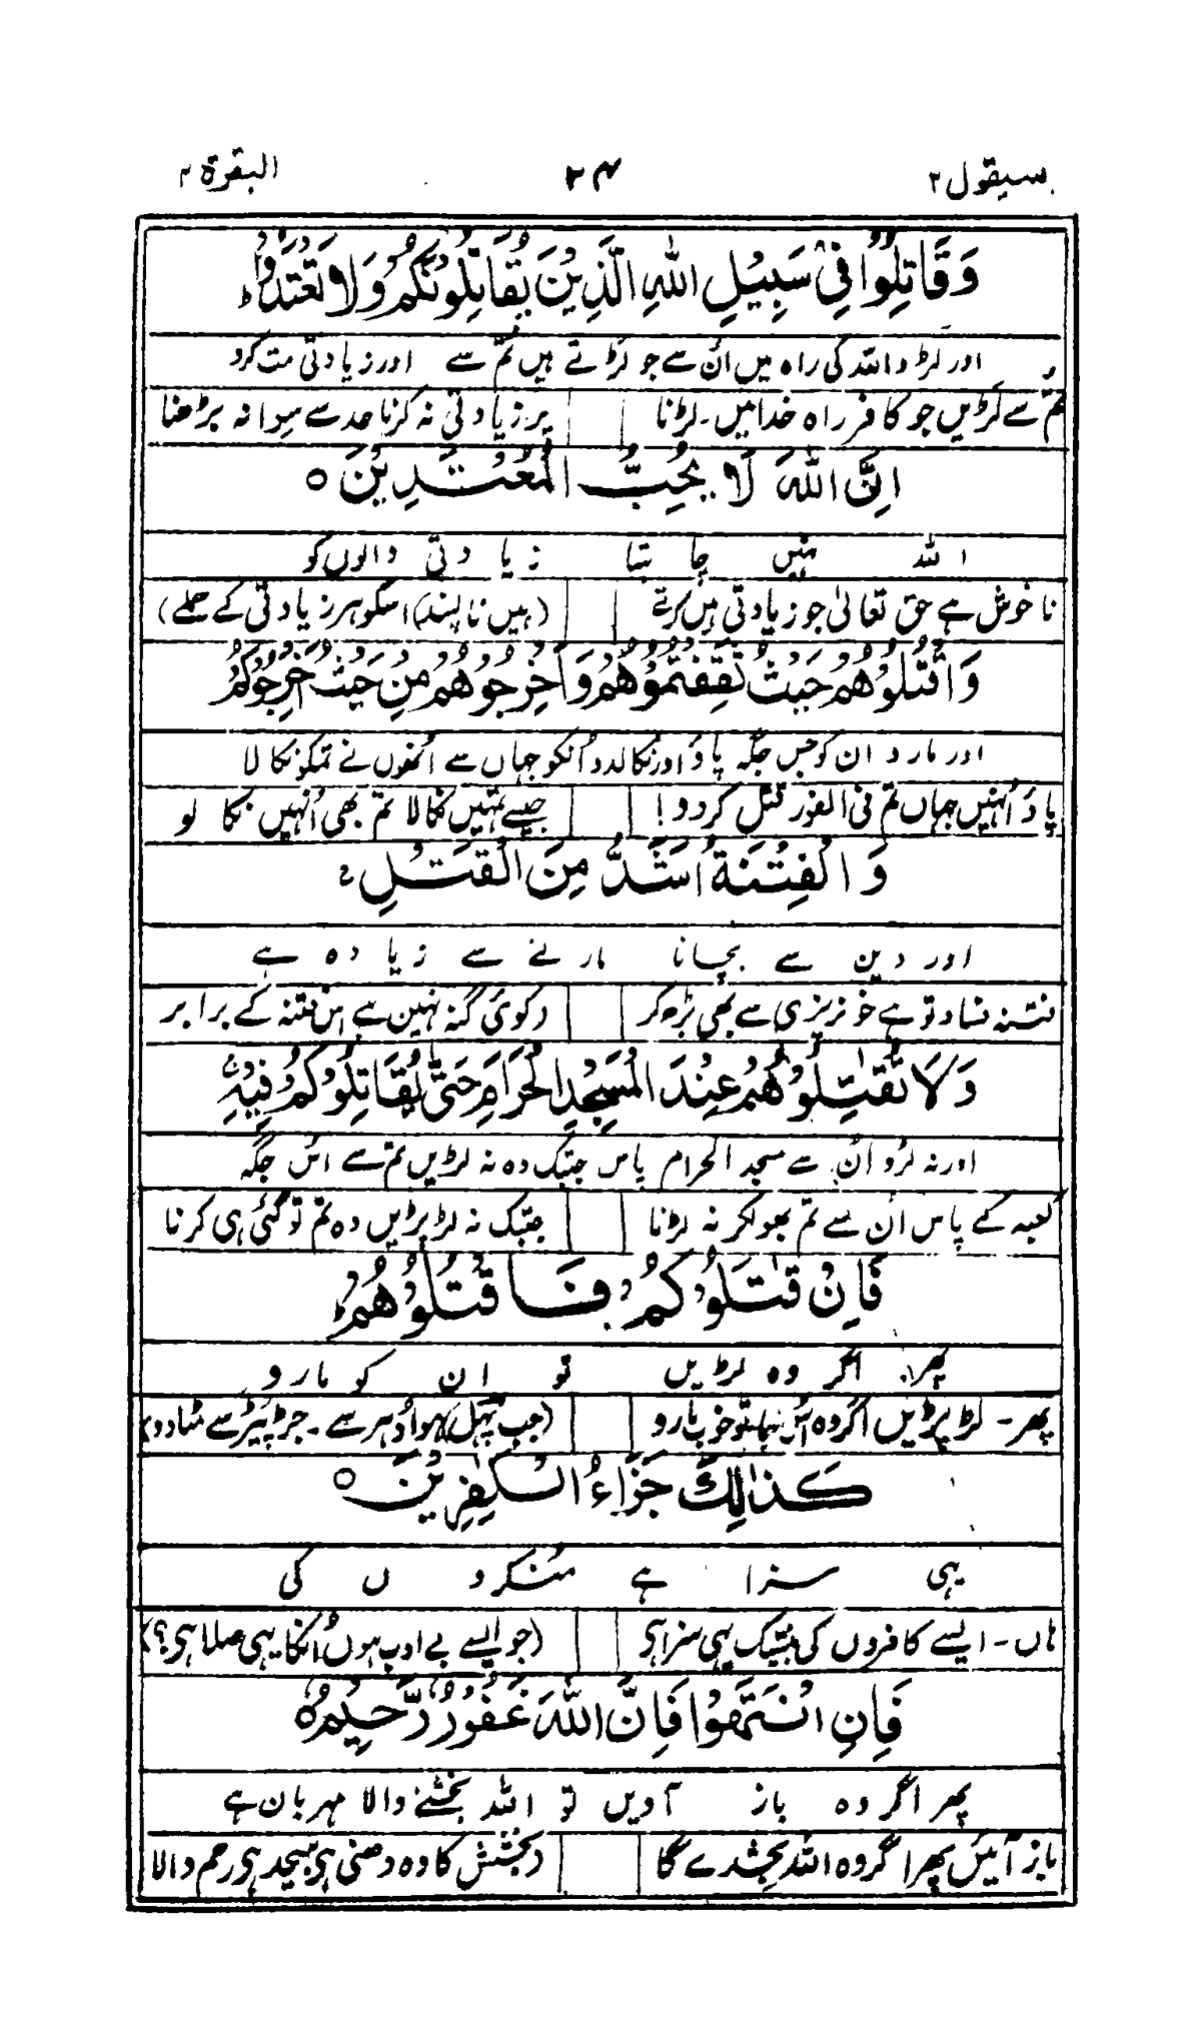 سیقول ۲ ۲۴ البقرة ۲
وَقَاتِلُوْا فِیْ سَبِیْلِ اللّٰهِ الَّذِیْنَ یُقَاتِلُوْنَكُمْ وَلَا تَعْتَدُوْا ؕ
اور لڑو اللہ کی راہ میں اُن سے جو لڑتے ہیں تم سے اور زیادتی مت کرو
تم سے لڑیں جو کافر راہ خدا میں۔ لڑنا پر زیادتی نہ کرنا حد سے سوا نہ بڑھنا
اِنَّ اللّٰهَ لَا یُحِبُّ الْمُعْتَدِیْنَ ○
اللہ نہیں چاہتا زیادتی والوں کو
ناخوش ہے حق تعالیٰ جو زیادتی ہیں کرتے (ہیں ناپسند) اسکو ہر زیادتی کے حملے)
وَاقْتُلُوْهُمْ حَیْثُ ثَقِفْتُمُوْهُمْ وَاَخْرِجُوْهُمْ مِنْ حَیْثُ اَخْرَجُوْكُمْ
اور مارو ان کو جس جگہ پاؤ اور نکالدو اُنکو جہاں سے اُنھوں نے تمکو نکالا
پاؤ اُنہیں جہاں تم فی الفور قتل کردو! جیسے تمہیں نکالا تم بھی اُنہیں نکالو
وَالْفِتْنَةُ اَشَدُّ مِنَ الْقَتْلِ ۚ
اور دین سے بچانا مارنے سے زیادہ ہے
فتنہ فساد تو ہے خونریزی سے بھی بڑھ کر (کوئی گنہ نہین ہے اس فتنہ کے برابر
وَلَا تُقٰتِلُوْهُمْ عِنْدَ الْمَسْجِدِ الْحَرَامِ حَتّٰی یُقَاتِلُوْكُمْ فِیْهِ ۚ
اور نہ لڑو اُن سے مسجد الحرام پاس جبتک وہ نہ لڑیں تم سے اس جگہ
کعبہ کے پاس اُن سے تم بھولکر نہ لڑنا جبتک نہ لڑ پڑیں وہ تم تو گئی ہی کرنا
فَاِنْ قٰتَلُوْكُمْ فَاقْتُلُوْهُمْ ؕ
پھر اگر وہ لڑیں تو ان کو مارو
پھر۔ لڑ پڑیں اگر وہ اس جا تو خوب مارو (جب پہل) ہو اُدہر سے۔ جڑ پیڑ سے مٹا دو)
كَذٰلِكَ جَزَآءُ الْكٰفِرِیْنَ ○
یہی سزا ہے منکروں کی
ہاں۔ ایسے کافروں کی بیشک یہی سزا ہی (جو ایسے بے ادب ہوں اُنکا یہی صلا ہی؟)
فَاِنِ انْتَهَوْا فَاِنَّ اللّٰهَ غَفُوْرٌ رَّحِیْمٌ ○
پھر اگر وہ باز آویں تو اللہ بخشنے والا مہربان ہے
باز آئیں پھر اگر وہ اللہ بخشدے گا (بخشش کا وہ دھنی ہی بیحد ہی رحم والا